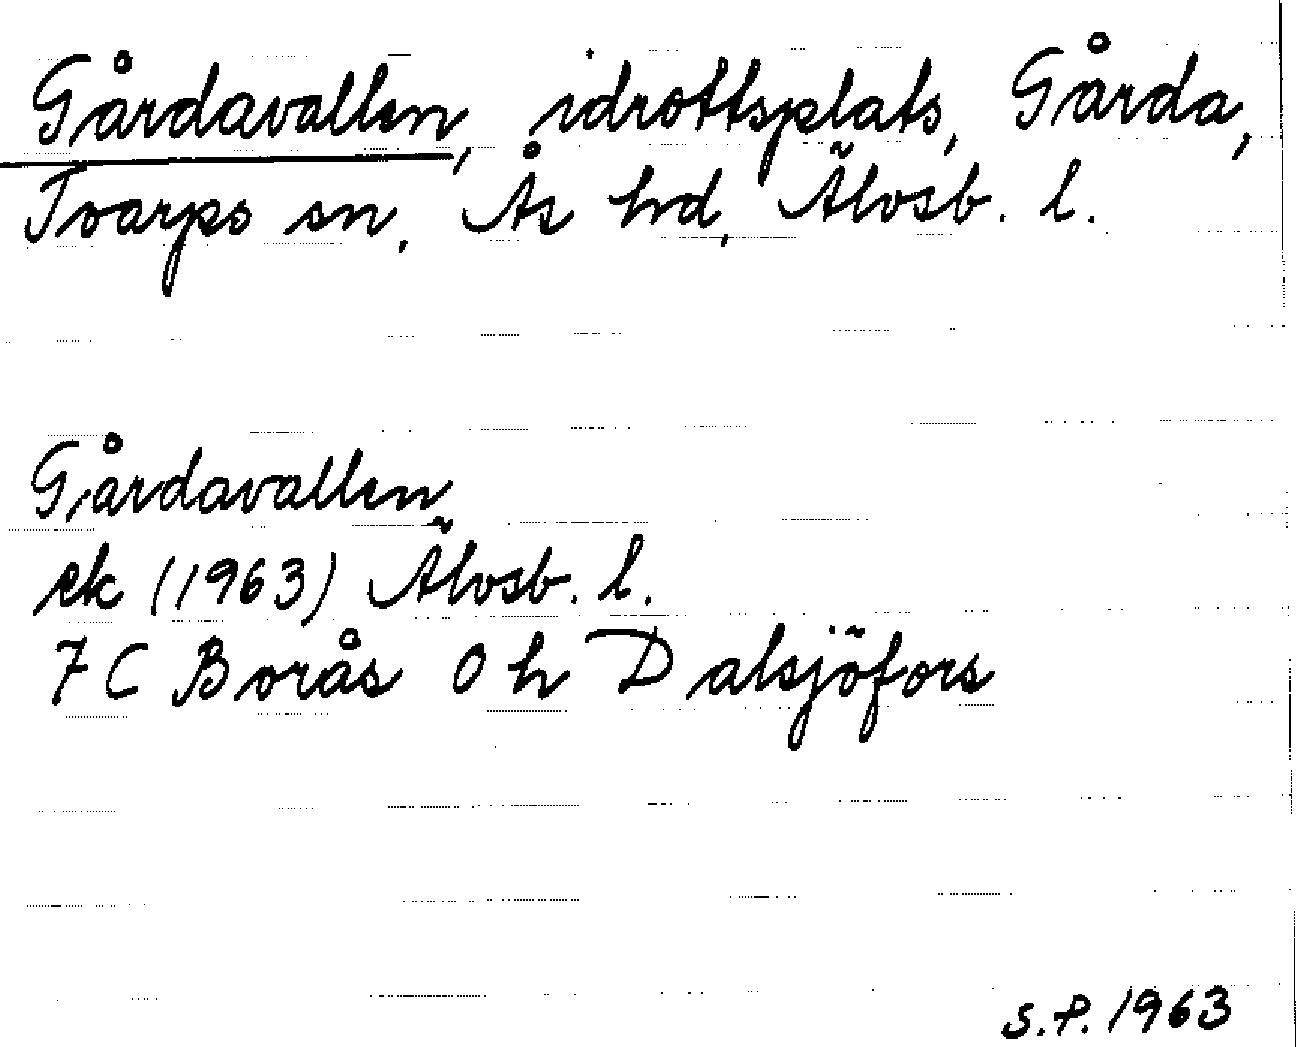 Gårdavallen, idrottsplats, Gårda,
Toarps sn, Ås hd, Älvsb. l.
Gårdavallen
ek (1963) Älvsb. l.
7 C Borås 0 h Dalsjöfors
S.P. 1963